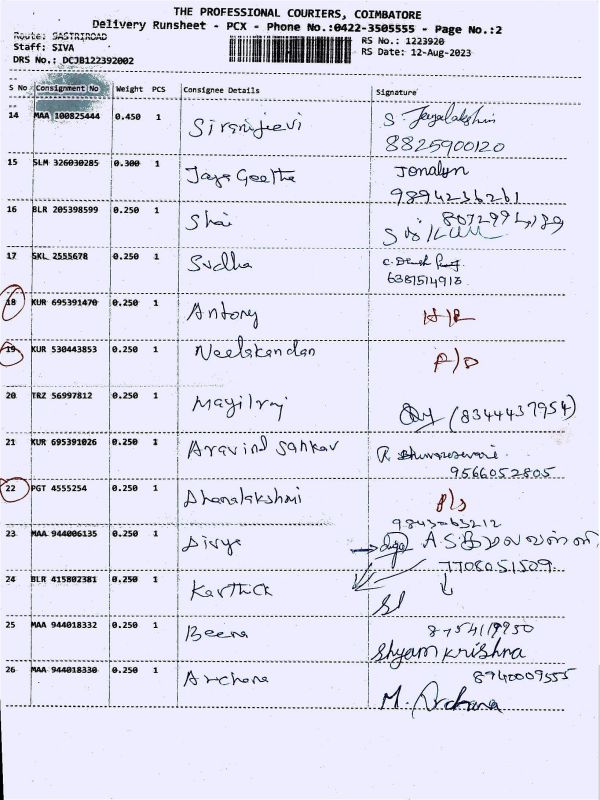 THE PROFESSIONAL COURIERS, COIMBATORE
Delivery Runsheet - PCX - Phone No.:0422-3505555 - Page No.:2
Route: SASTRIROAD
Staff: SIVA
DRS No.: DCJB122392002
RS No.: 1223920
RS Date: 12-Aug-2023
S No Consignment No Weight PCS Consignee Details Signature
14 MAA 100825444 0.450 1 S. Jayalakshmi
8825900120
15 SLM 326030285 0.300 1 Jaya Geetha Jonalyn
9894236261
16 BLR 205398599 0.250 1 Shai
17 SKL 2555678 0.250 1 Sudha
6381514913
18 KUR 695391470 0.250 1 Antony
19 KUR 530443853 0.250 1 Neelakandan
20 TRZ 56997812 0.250 1 Mayilraj (8344437954)
21 KUR 695391026 0.250 1 Aravind Sankar R. Bhuvaneswari
9566052805
22 PGT 4555254 0.250 1 Dhanalakshmi
23 MAA 944006135 0.250 1 Divya
7708051509
24 BLR 415802381 0.250 1 Karthick
25 MAA 944018332 0.250 1 Beena 8754119950
Shyam Krishna
26 MAA 944018330 0.250 1 Archana 8940009555
M. Archana